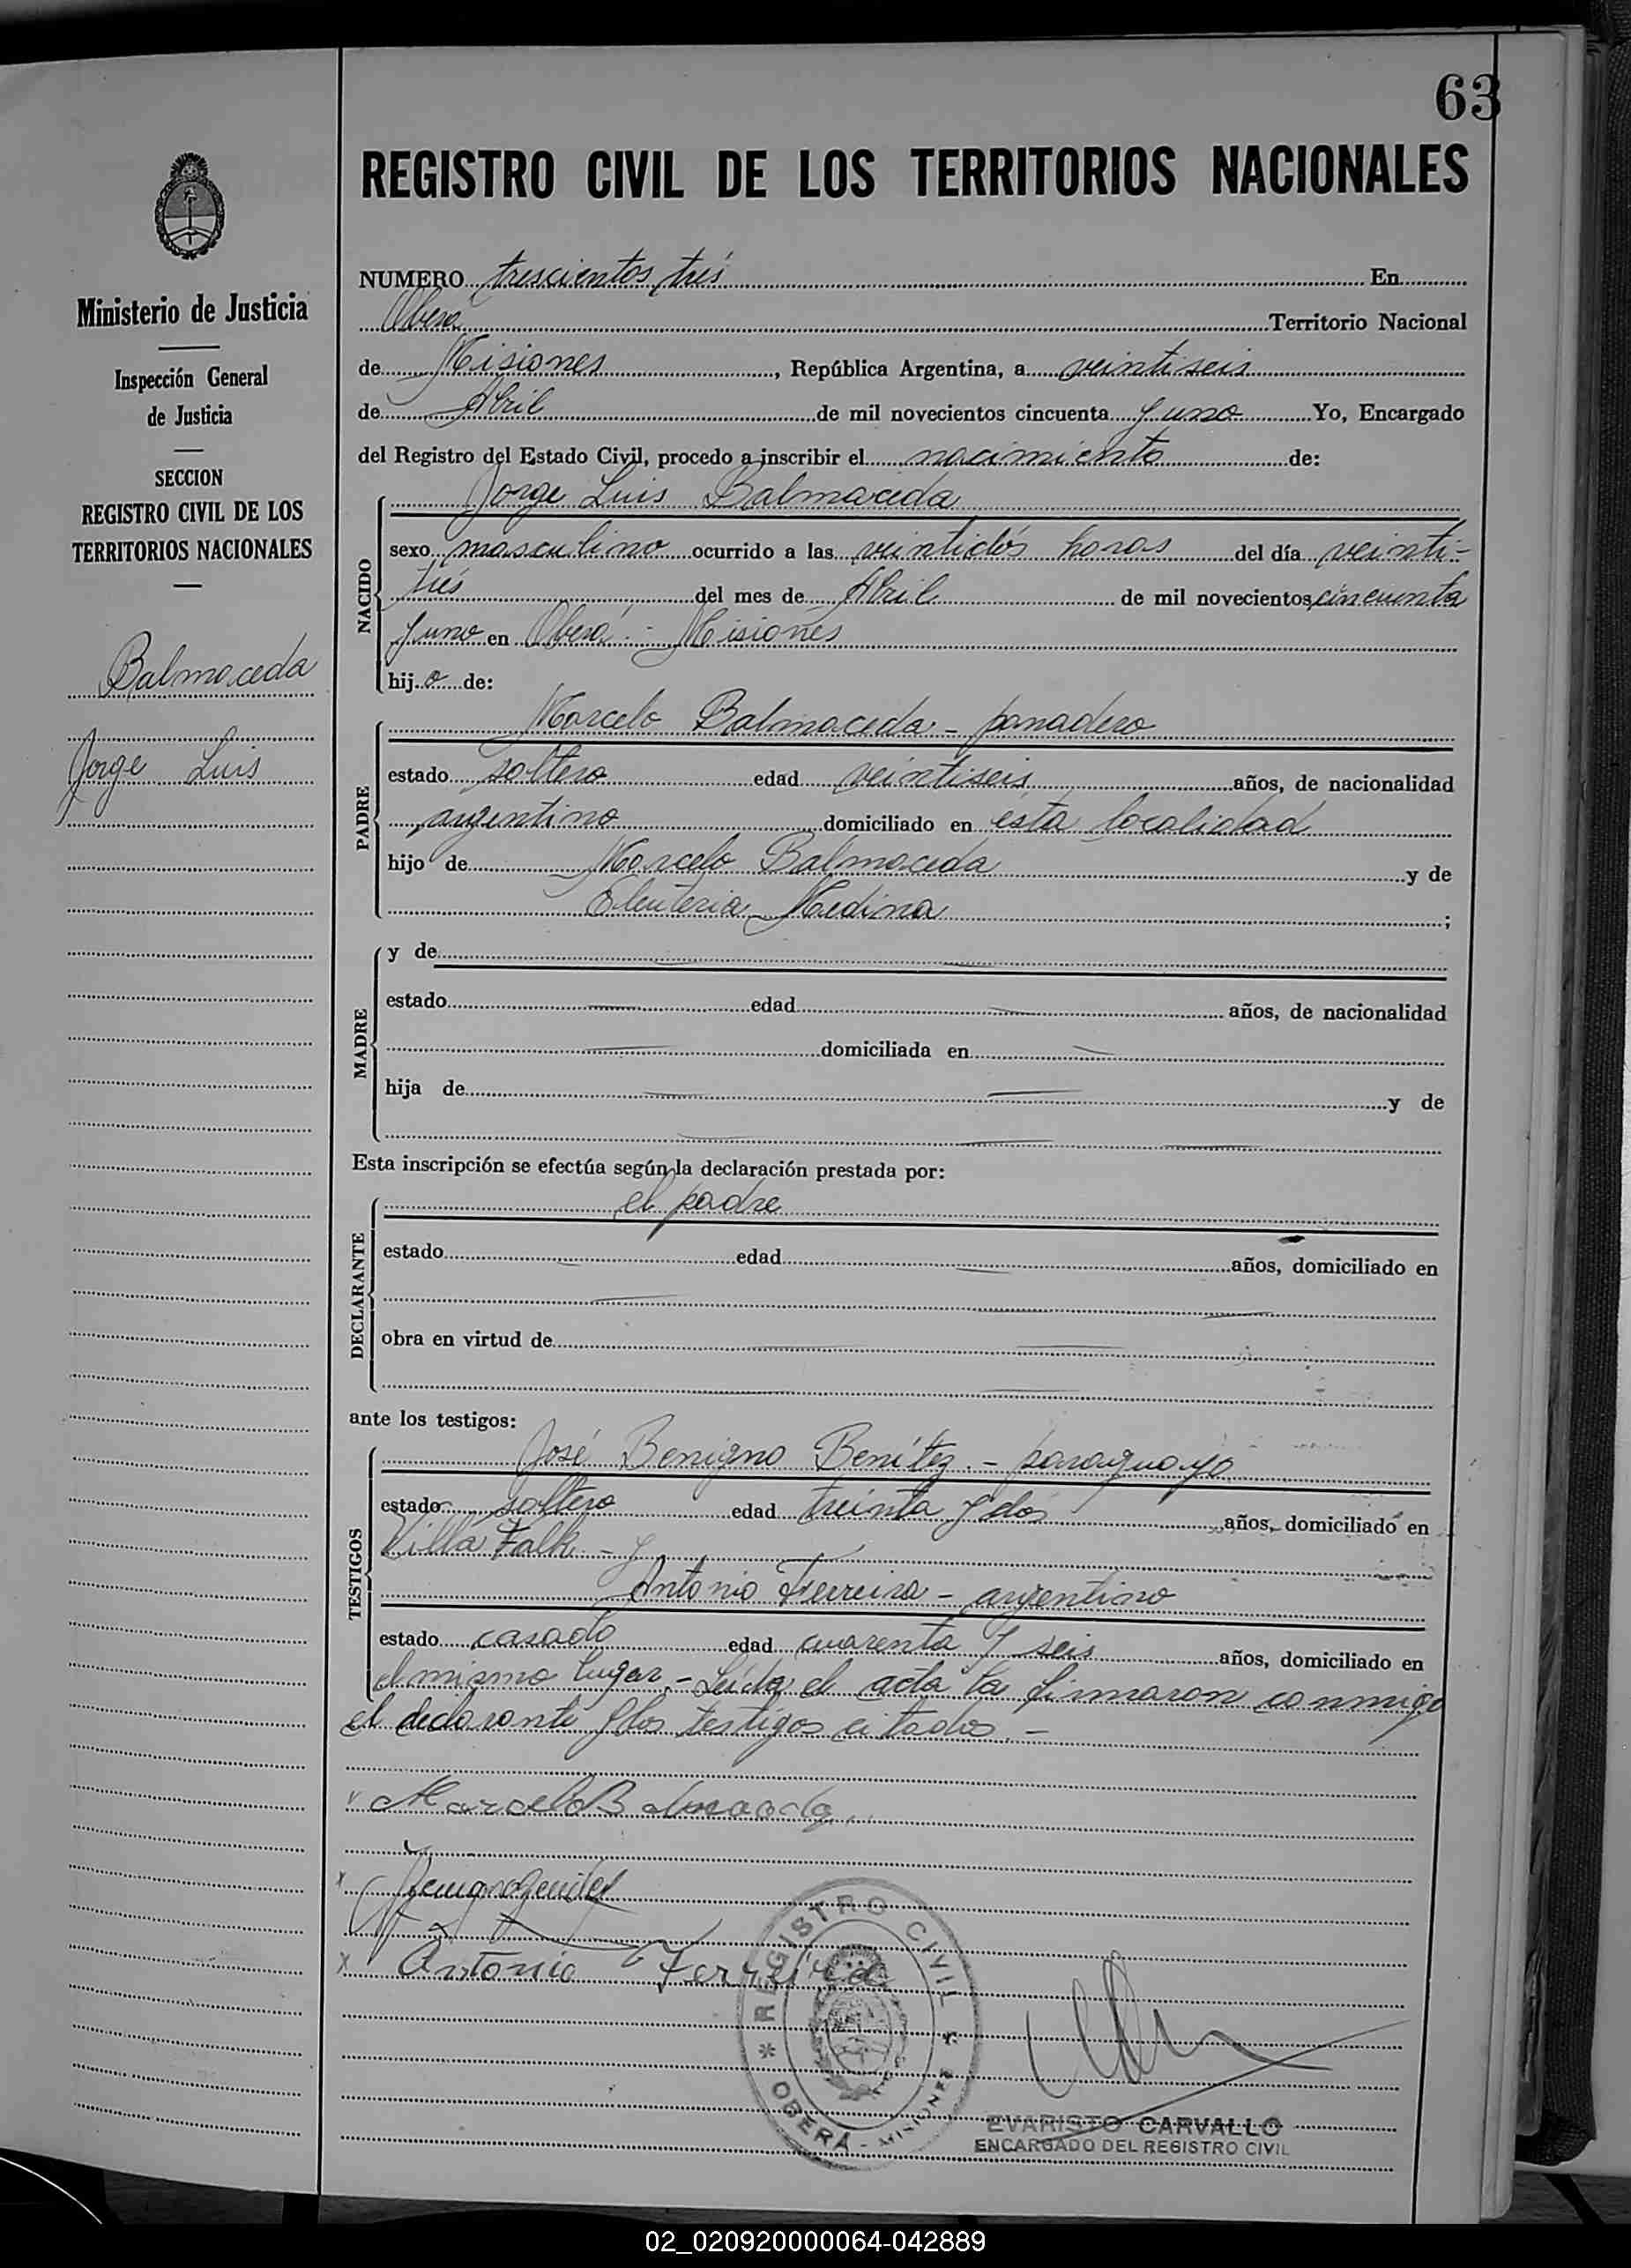 63
REGISTRO CIVIL DE LOS TERRITORIOS NACIONALES
Ministerio de Justicia
Inspección General
de Justicia
SECCION
REGISTRO CIVIL DE LOS
TERRITORIOS NACIONALES
Balmaceda
Jorge Luis
NUMERO trescientos trés En
Oberá Territorio Nacional
de Misiones, República Argentina, a veintiseis
de Abril de mil novecientos cincuenta y uno Yo, Encargado
del Registro del Estado Civil, procedo a inscribir el nacimiento de:
NACIDO
Jorge Luis Balmaceda
sexo masculino ocurrido a las veintidós horas del día veinti-
trés del mes de Abril de mil novecientos cincuenta
y uno en Oberá.- Misiones
hijo de:
PADRE
Marcelo Balmaceda - panadero
estado soltero edad veintiseis años, de nacionalidad
argentino domiciliado en esta localidad
hijo de Marcelo Balmaceda y de
Eleuteria Medina ;
MADRE
y de
estado edad años, de nacionalidad
domiciliada en
hija de y de
Esta inscripción se efectúa según la declaración prestada por:
DECLARANTE
el padre
estado edad años, domiciliado en
obra en virtud de
ante los testigos:
TESTIGOS
José Benigno Benítez.- paraguayo
estado soltero edad treinta y dos años, domiciliado en
Villa Falk - y
Antonio Ferreira - argentino
estado casado edad cuarenta y seis años, domiciliado en
el mismo lugar.- Leída el acta la firmaron conmigo
el declarante y los testigos citados.-
Marcelo Balmaceda
Antonio Ferreira
REGISTRO CIVIL
OBERÁ - MISIONES
EVARISTO CARVALLO
ENCARGADO DEL REGISTRO CIVIL
02_020920000064-042889